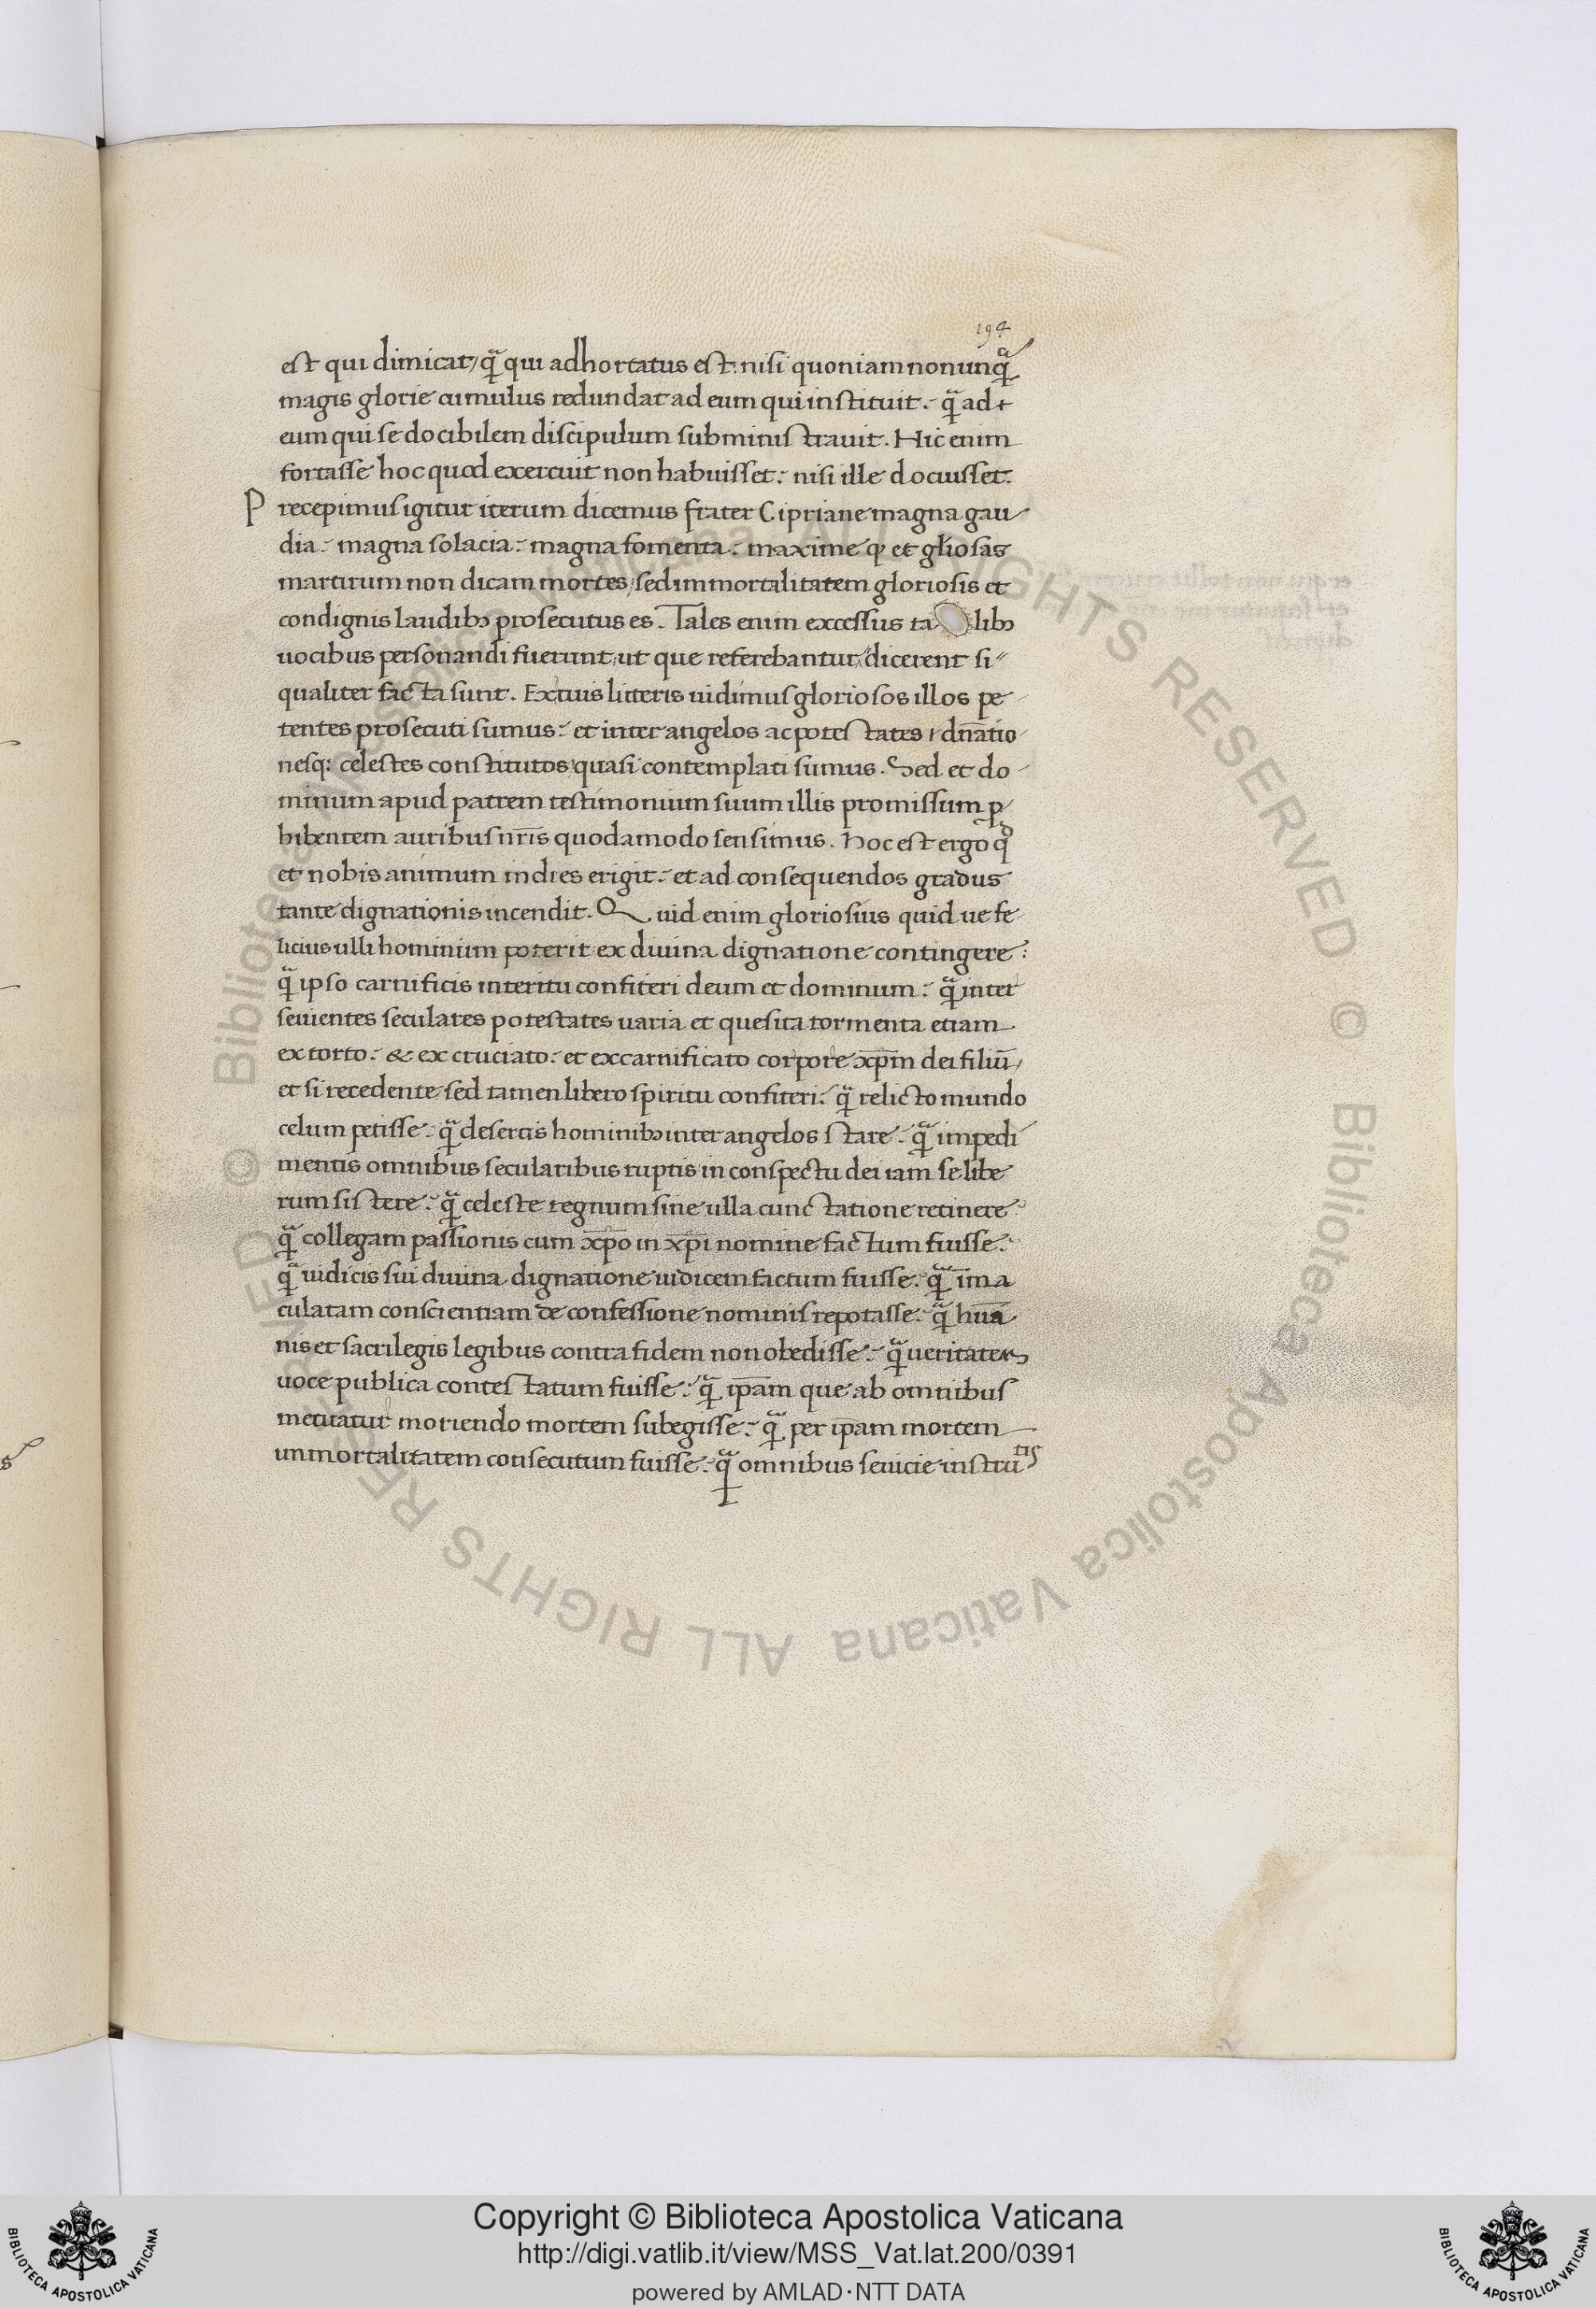 194
est qui dimicat, qᷓ qui adhortatus est. nisi quoniam nonunqᷓ
magis glorie cumulus redundat ad eum qui instituit. qᷓ ad
eum qui se docibilem discipulum subministrauit. Hic enim
fortasse hoc quod exercuit non habuisset: nisi ille docuisset.
Precepimus igitur iterum dicemus frater Cipriane magna gau
dia: magna solacia: magna fomenta: maxime qꝫ et gl̄iosas
martirum non dicam mortes, sed immortalitatem gloriosis et
condignis laudibꝫ prosecutus es. Tales enim excessus ta libꝫ
uocibus personandi fuerunt, ut que referebantur, dicerent si
qualiter facta sunt. Ex tuis litteris uidimus gloriosos illos pe
tentes prosecuti sumus: et inter angelos ac potestates dn̄atio
nesq: celestes constitutos quasi contemplati sumus. Sed et do
minum apud patrem testimonium suum illis promissum p̲
hibentem auribus nr̄is quodamodo sensimus. Hoc est ergo qͦ
et nobis animum indies erigit: et ad consequendos gradus
tante dignationis incendit. Quid enim gloriosius quid ue fe
licius ulli hominum poterit ex diuina dignatione contingere:
qᷓ ipso carnificis interitu confiteri deum et dominum: qᷓ inter
seuientes seculares potestates uaria et quesita tormenta etiam
extorto: & excruciato: et excarnificato corpore xp̄m dei filiū,
et si recedente sed tamen libero spiritu confiteri: qᷓ relicto mundo
celum petisse: qᷓ desertis hominibꝫ inter angelos stare: qᷓ impedi
mentis omnibus secularibus ruptis in conspectu dei iam se libe
rum sistere: qᷓ celeste regnum sine ulla cunctatione retinere:
qᷓ collegam passionis cum xp̄o in xp̄i nomine factum fuisse.
qᷓ iudicis sui diuina dignatione iudicem factum fuisse. qᷓ īma
culatam conscientiam de confessione nominis repotasse: qᷓ hūa
nis et sacrilegis legibus contra fidem non obedisse: qᷓ ueritatem
uoce publica contestatum fuisse: qᷓ ip̄am que ab omnibus
metuatur moriendo mortem subegisse: qᷓ per ip̄am mortem
immortalitatem consecutum fuisse: qᷓ omnibus seuicie instrūtis
Copyright © Biblioteca Apostolica Vaticana
http://digi.vatlib.it/view/MSS_Vat.lat.200/0391
powered by AMLAD·NTT DATA
BIBLIOTECA APOSTOLICA VATICANA
BIBLIOTECA APOSTOLICA VATICANA
© Biblioteca Apostolica Vaticana ALL RIGHTS RESERVED © Biblioteca Apostolica Vaticana ALL RIGHTS RESERVED